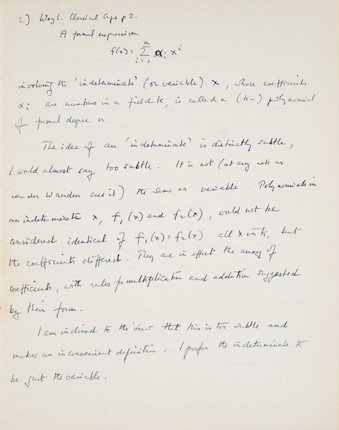 2.) Weyl. Classical Groups p 3.
A formal expression
f(x) = Σ_{i=1}^{n} α_i x^i
involving the 'indeterminate' (or variable) x, whose coefficients
α_i are numbers in a field K, is called a (K-) polynomial
of formal degree n.
The idea of an 'indeterminate' is distinctly subtle,
I would almost say too subtle. It is not (at any rate as
van der Waerden sees it) the same as variable. Polynomials in
an indeterminate x, f₁(x) and f₂(x), would not be
considered identical if f₁(x) = f₂(x) all x in K, but
the coefficients differed. They are in effect the array of
coefficients, with rules for multiplication and addition suggested
by their form.
I am inclined to the view that this is too subtle and
makes an inconvenient definition. I prefer the indeterminate to
be just the variable.